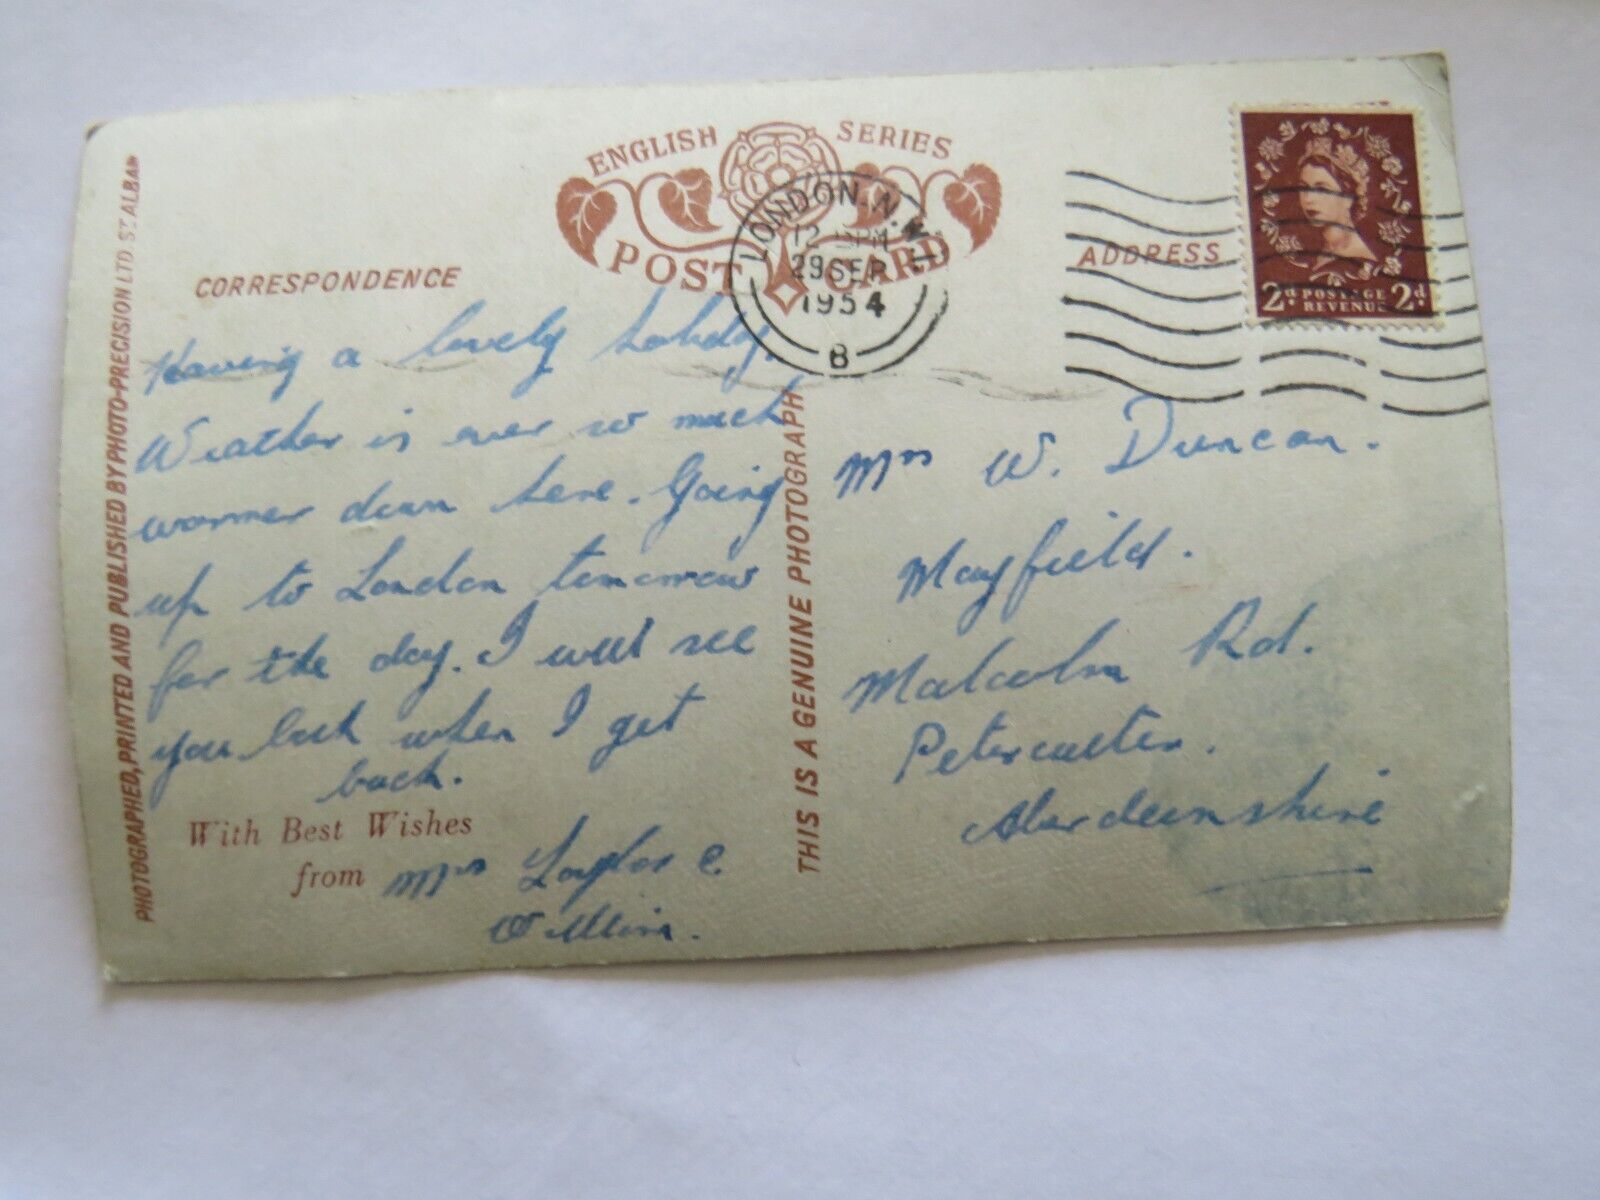 ENGLISH SERIES
POST CARD
CORRESPONDENCE
ADDRESS
LONDON. N.W.1
12 PM
29 SEP
1954
B
2d. POSTAGE 2d.
REVENUE
PHOTOGRAPHED, PRINTED AND PUBLISHED BY PHOTO-PRECISION LTD. ST. ALBAN
Having a lovely holiday.
Weather is ever so much
warmer down here. Going
up to London tomorrow
for the day. I will see
you back when I get
back.
With Best Wishes
from Mrs Taylor &
THIS IS A GENUINE PHOTOGRAPH
Mrs W. Duncan.
Mayfield.
Malcolm Rd.
Peterculter.
Aberdeenshire